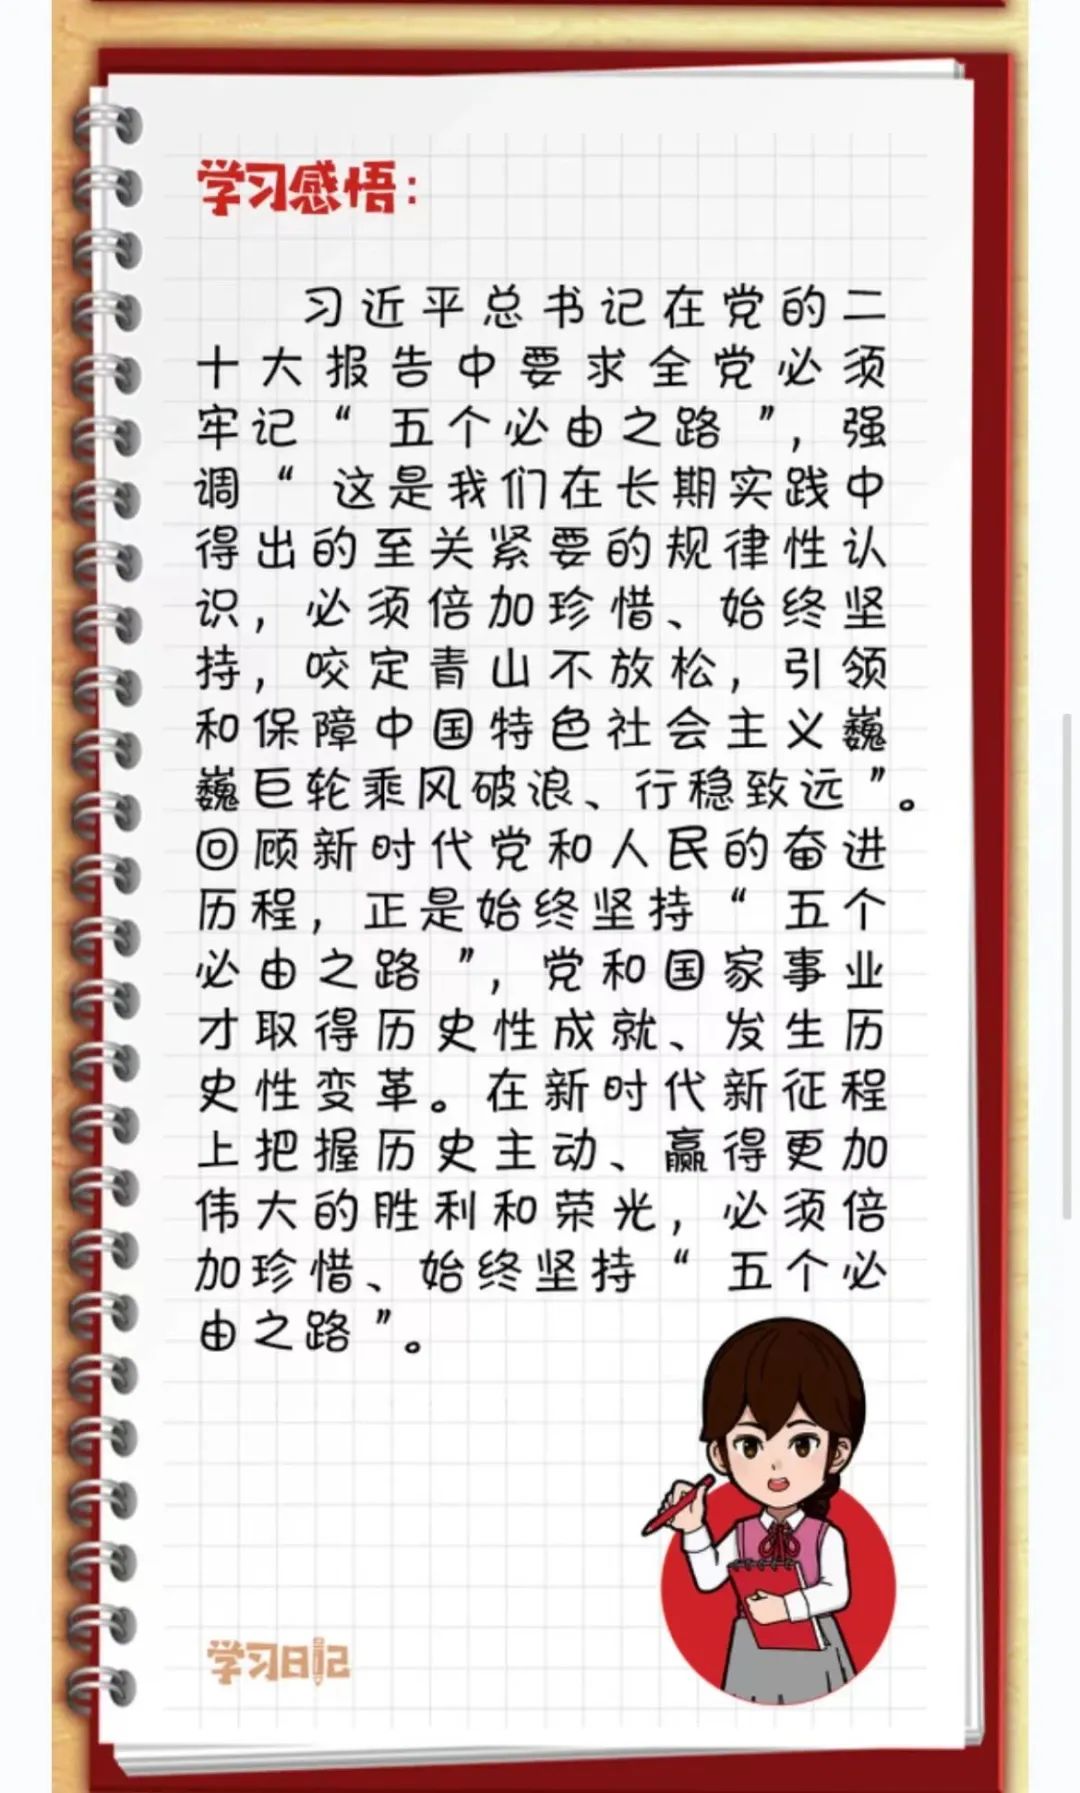 学习感悟：
习近平总书记在党的二
十大报告中要求全党必须
牢记“五个必由之路”，强
调“这是我们在长期实践中
得出的至关紧要的规律性认
识，必须倍加珍惜、始终坚
持，咬定青山不放松，引领
和保障中国特色社会主义巍
巍巨轮乘风破浪、行稳致远”。
回顾新时代党和人民的奋进
历程，正是始终坚持“五个
必由之路”，党和国家事业
才取得历史性成就、发生历
史性变革。在新时代新征程
上把握历史主动、赢得更加
伟大的胜利和荣光，必须倍
加珍惜、始终坚持“五个必
由之路”。
学习日记